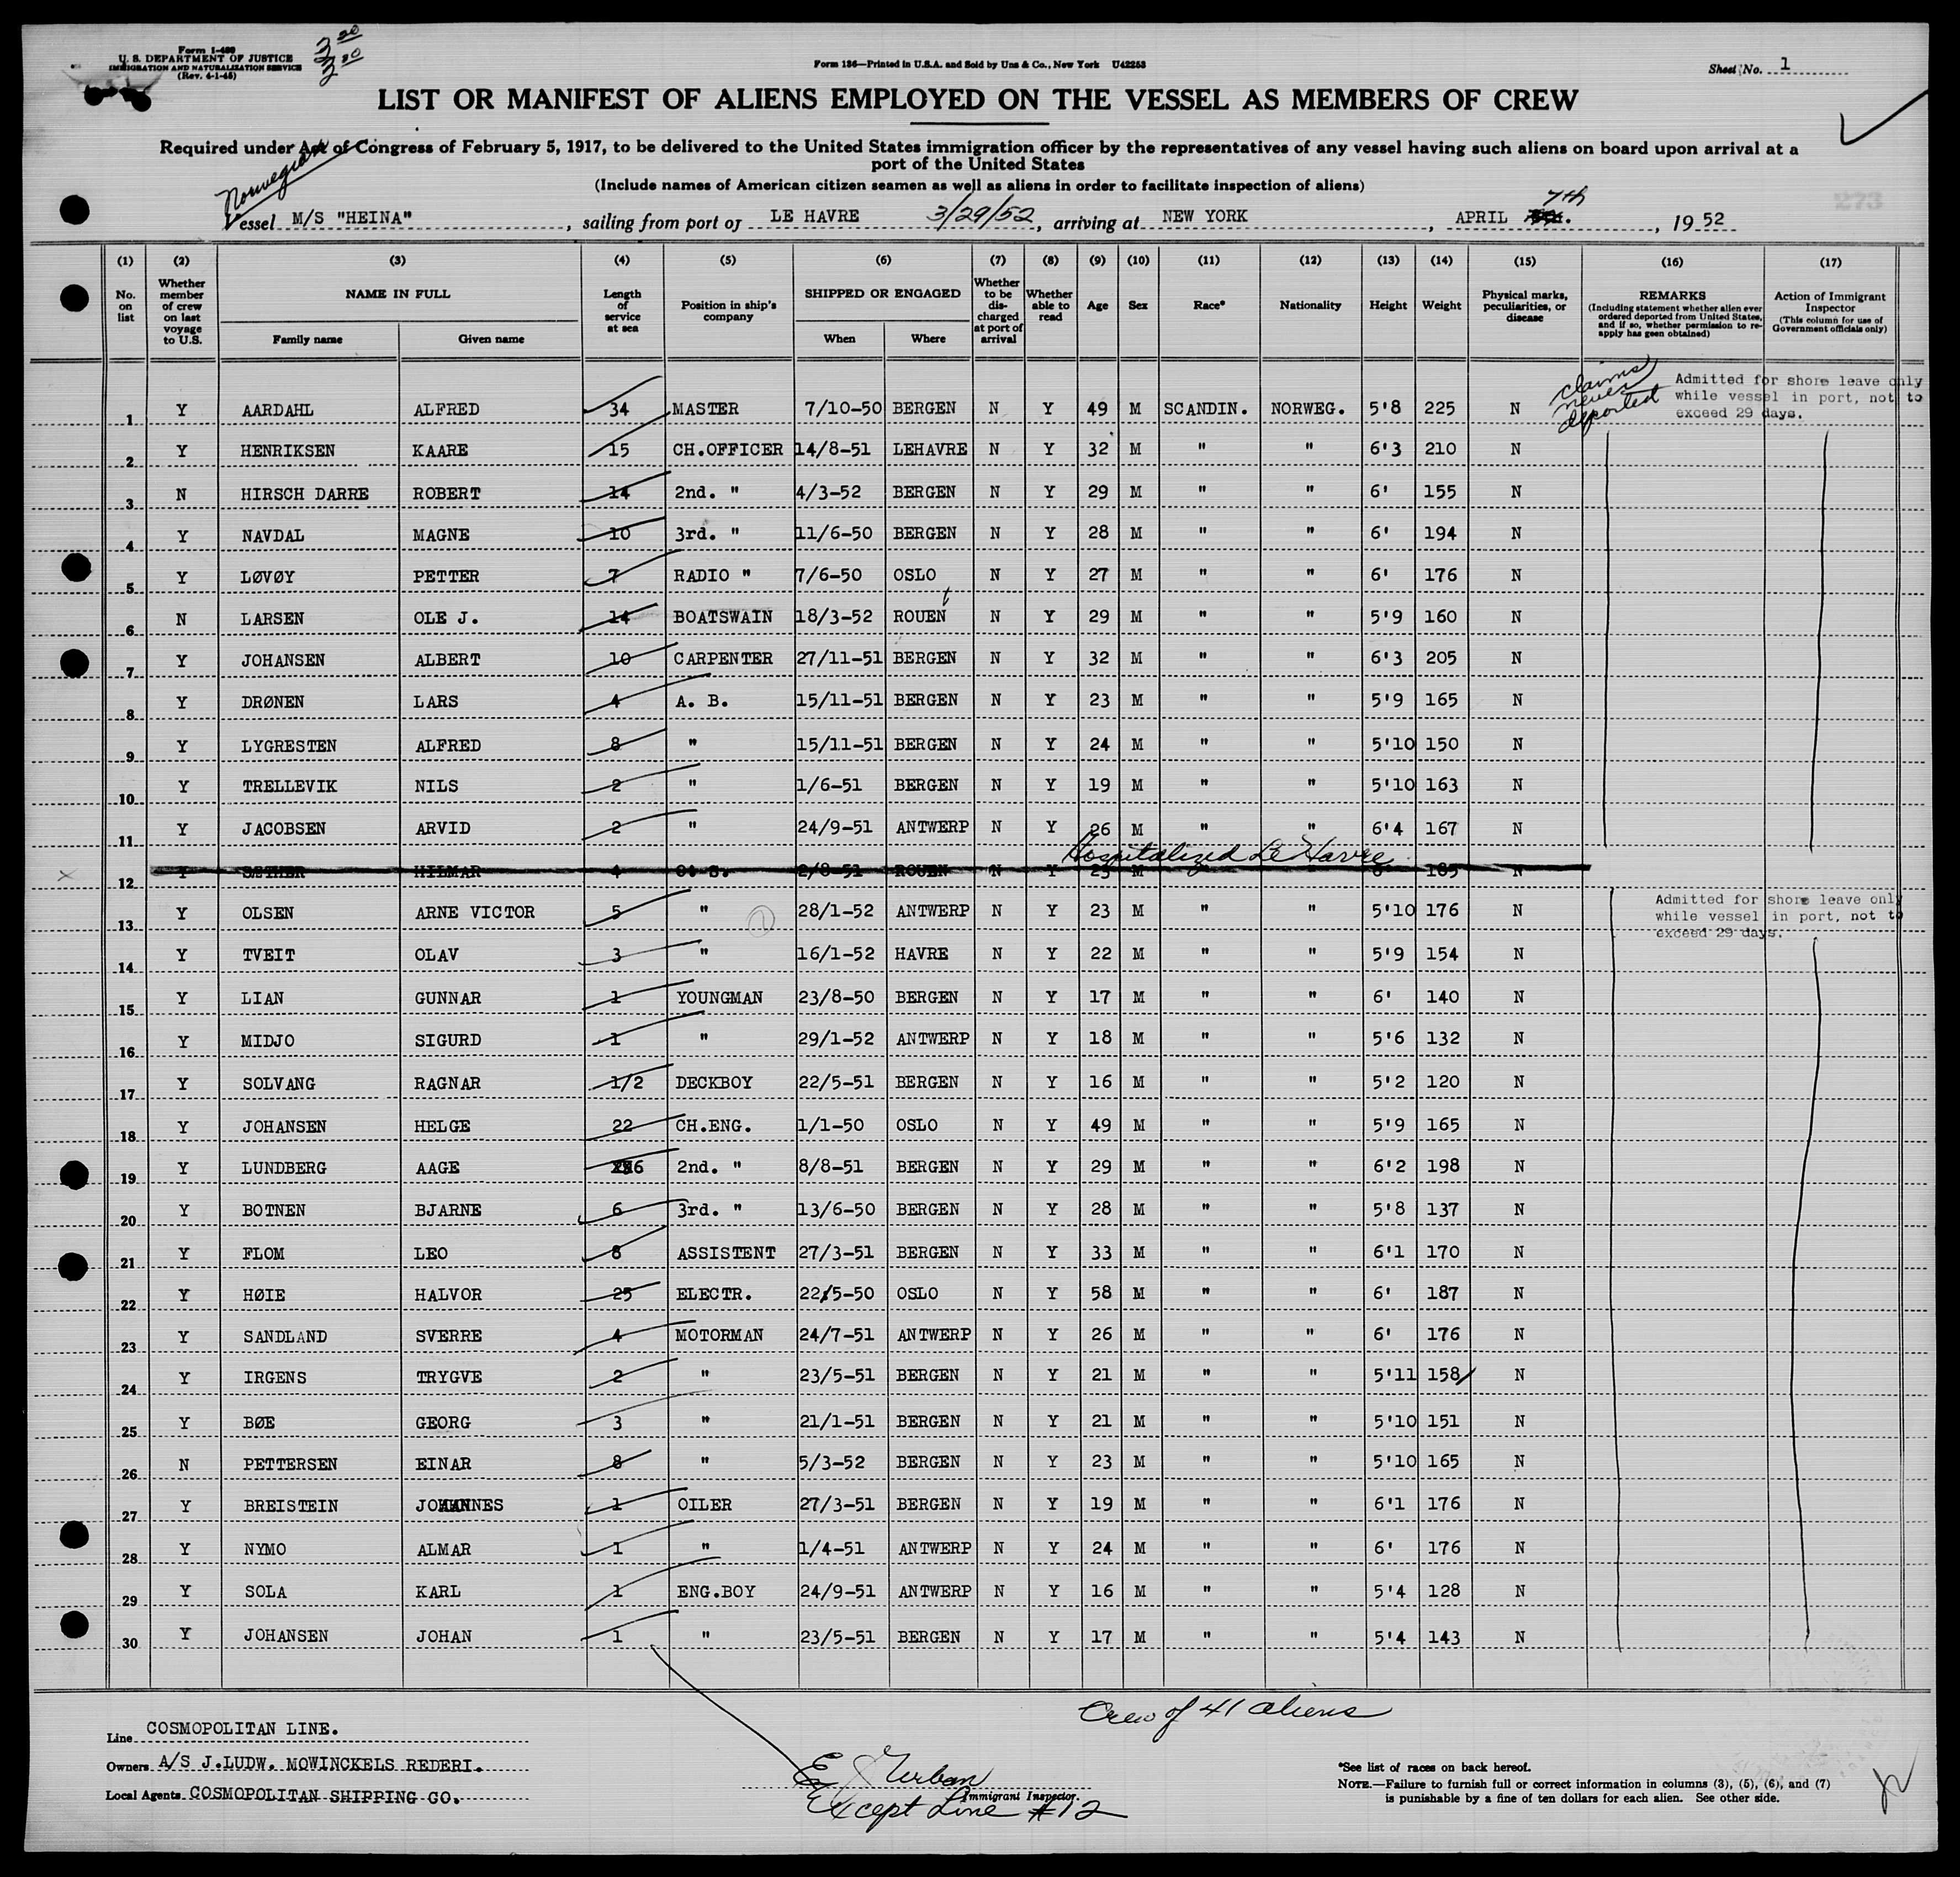 Form I-489
U. S. DEPARTMENT OF JUSTICE
IMMIGRATION AND NATURALIZATION SERVICE
(Rev. 4-1-45)
Form 136—Printed in U.S.A. and Sold by Unz & Co., New York U42253
Sheet No. 1
LIST OR MANIFEST OF ALIENS EMPLOYED ON THE VESSEL AS MEMBERS OF CREW
Required under Act of Congress of February 5, 1917, to be delivered to the United States immigration officer by the representatives of any vessel having such aliens on board upon arrival at a
port of the United States
(Include names of American citizen seamen as well as aliens in order to facilitate inspection of aliens)
Norwegian
7th
273
Vessel M/S "HEINA", sailing from port of LE HAVRE 3/29/52, arriving at NEW YORK, APRIL, 19 52
(1) (2) (3) (4) (5) (6) (7) (8) (9) (10) (11) (12) (13) (14) (15) (16) (17)
No. on list
Whether member of crew on last voyage to U.S.
NAME IN FULL
Family name Given name
Length of service at sea
Position in ship's company
SHIPPED OR ENGAGED
When Where
Whether to be discharged at port of arrival
Whether able to read
Age
Sex
Race*
Nationality
Height
Weight
Physical marks, peculiarities, or disease
REMARKS
(Including statement whether alien ever ordered deported from United States, and if so, whether permission to re-apply has geen obtained)
Action of Immigrant Inspector
(This column for use of Government officials only)
claims never deported
Admitted for shore leave only
while vessel in port, not to
exceed 29 days.
1 Y AARDAHL ALFRED 34 MASTER 7/10-50 BERGEN N Y 49 M SCANDIN. NORWEG. 5'8 225 N
2 Y HENRIKSEN KAARE 15 CH.OFFICER 14/8-51 LEHAVRE N Y 32 M " " 6'3 210 N
3 N HIRSCH DARRE ROBERT 14 2nd. " 4/3-52 BERGEN N Y 29 M " " 6' 155 N
4 Y NAVDAL MAGNE 10 3rd. " 11/6-50 BERGEN N Y 28 M " " 6' 194 N
5 Y LØVØY PETTER 7 RADIO " 7/6-50 OSLO N Y 27 M " " 6' 176 N
6 N LARSEN OLE J. 14 BOATSWAIN 18/3-52 ROUEN N Y 29 M " " 5'9 160 N
7 Y JOHANSEN ALBERT 10 CARPENTER 27/11-51 BERGEN N Y 32 M " " 6'3 205 N
8 Y DRØNEN LARS 4 A. B. 15/11-51 BERGEN N Y 23 M " " 5'9 165 N
9 Y LYGRESTEN ALFRED 8 " 15/11-51 BERGEN N Y 24 M " " 5'10 150 N
10 Y TRELLEVIK NILS 2 " 1/6-51 BERGEN N Y 19 M " " 5'10 163 N
11 Y JACOBSEN ARVID 2 " 24/9-51 ANTWERP N Y 26 M " " 6'4 167 N
Hospitalized Le Havre
12 Y SÆTHER HILMAR 4 O. S. 2/8-51 ROUEN N Y 23 M 6' 185 N
13 Y OLSEN ARNE VICTOR 5 " 28/1-52 ANTWERP N Y 23 M " " 5'10 176 N
Admitted for shore leave only
while vessel in port, not to
exceed 29 days.
14 Y TVEIT OLAV 3 " 16/1-52 HAVRE N Y 22 M " " 5'9 154 N
15 Y LIAN GUNNAR 1 YOUNGMAN 23/8-50 BERGEN N Y 17 M " " 6' 140 N
16 Y MIDJO SIGURD 1 " 29/1-52 ANTWERP N Y 18 M " " 5'6 132 N
17 Y SOLVANG RAGNAR 1/2 DECKBOY 22/5-51 BERGEN N Y 16 M " " 5'2 120 N
18 Y JOHANSEN HELGE 22 CH.ENG. 1/1-50 OSLO N Y 49 M " " 5'9 165 N
19 Y LUNDBERG AAGE 2nd. " 8/8-51 BERGEN N Y 29 M " " 6'2 198 N
20 Y BOTNEN BJARNE 6 3rd. " 13/6-50 BERGEN N Y 28 M " " 5'8 137 N
21 Y FLOM LEO 8 ASSISTENT 27/3-51 BERGEN N Y 33 M " " 6'1 170 N
22 Y HØIE HALVOR 25 ELECTR. 22/5-50 OSLO N Y 58 M " " 6' 187 N
23 Y SANDLAND SVERRE 4 MOTORMAN 24/7-51 ANTWERP N Y 26 M " " 6' 176 N
24 Y IRGENS TRYGVE 2 " 23/5-51 BERGEN N Y 21 M " " 5'11 158 N
25 Y BØE GEORG 3 " 21/1-51 BERGEN N Y 21 M " " 5'10 151 N
26 N PETTERSEN EINAR 8 " 5/3-52 BERGEN N Y 23 M " " 5'10 165 N
27 Y BREISTEIN JOHANNES 1 OILER 27/3-51 BERGEN N Y 19 M " " 6'1 176 N
28 Y NYMO ALMAR 1 " 1/4-51 ANTWERP N Y 24 M " " 6' 176 N
29 Y SOLA KARL 1 ENG.BOY 24/9-51 ANTWERP N Y 16 M " " 5'4 128 N
30 Y JOHANSEN JOHAN 1 " 23/5-51 BERGEN N Y 17 M " " 5'4 143 N
Crew of 41 aliens
Line COSMOPOLITAN LINE.
Owners A/S J.LUDW. MOWINCKELS REDERI.
Local Agents COSMOPOLITAN SHIPPING CO.
E J Urban
Immigrant Inspector.
Except Line #12
*See list of races on back hereof.
NOTE.—Failure to furnish full or correct information in columns (3), (5), (6), and (7)
is punishable by a fine of ten dollars for each alien. See other side.